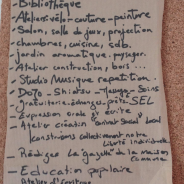 - Bibliothèque
- Ateliers vélo - couture - peinture
- Salon, salle de jeux, projection
- chambres, cuisine, sdb.
- jardin aromatique, potager.
- Atelier construction, bois...
- Studio Musique repetition.
- Dojo - Shiatsu - Soins
gratuiterie. échanges. SEL
- Expression orale et écrite
- Atelier création
construisons collectivement notre
liberté individuelle
- Rédiger la "gazette" de la maison
commune
- Education populaire
Atelier d'écriture